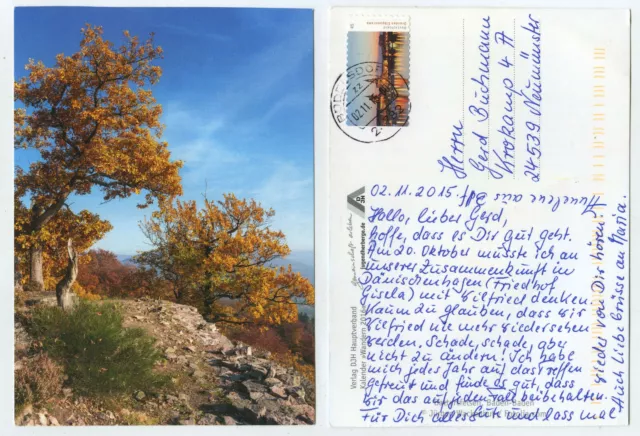 Herrn
Gerd Buchmann
Krokamp 4 A
24539 Neumünster
02.11.2015
Hallo, lieber Gerd,
hoffe, dass es Dir gut geht.
Am 20. Oktober musste ich an
unsere Zusammenkunft in
Dänischenhagen (Friedhof
Gisela) mit Wilfried denken.
Kaum zu glauben, dass wir
Wilfried nie mehr wiedersehen
werden. Schade, schade, aber
nicht zu ändern! Ich habe
mich jedes Jahr auf das Treffen
gefreut und finde es gut, dass
wir das auf jeden Fall beibehalten.
Für Dich alles Gute und lass mal
wieder von Dir hören!
Auch liebe Grüsse an Maria.
jugendherberge.de
Verlag DJH Hauptverband
Kalender »Wandern 2014«